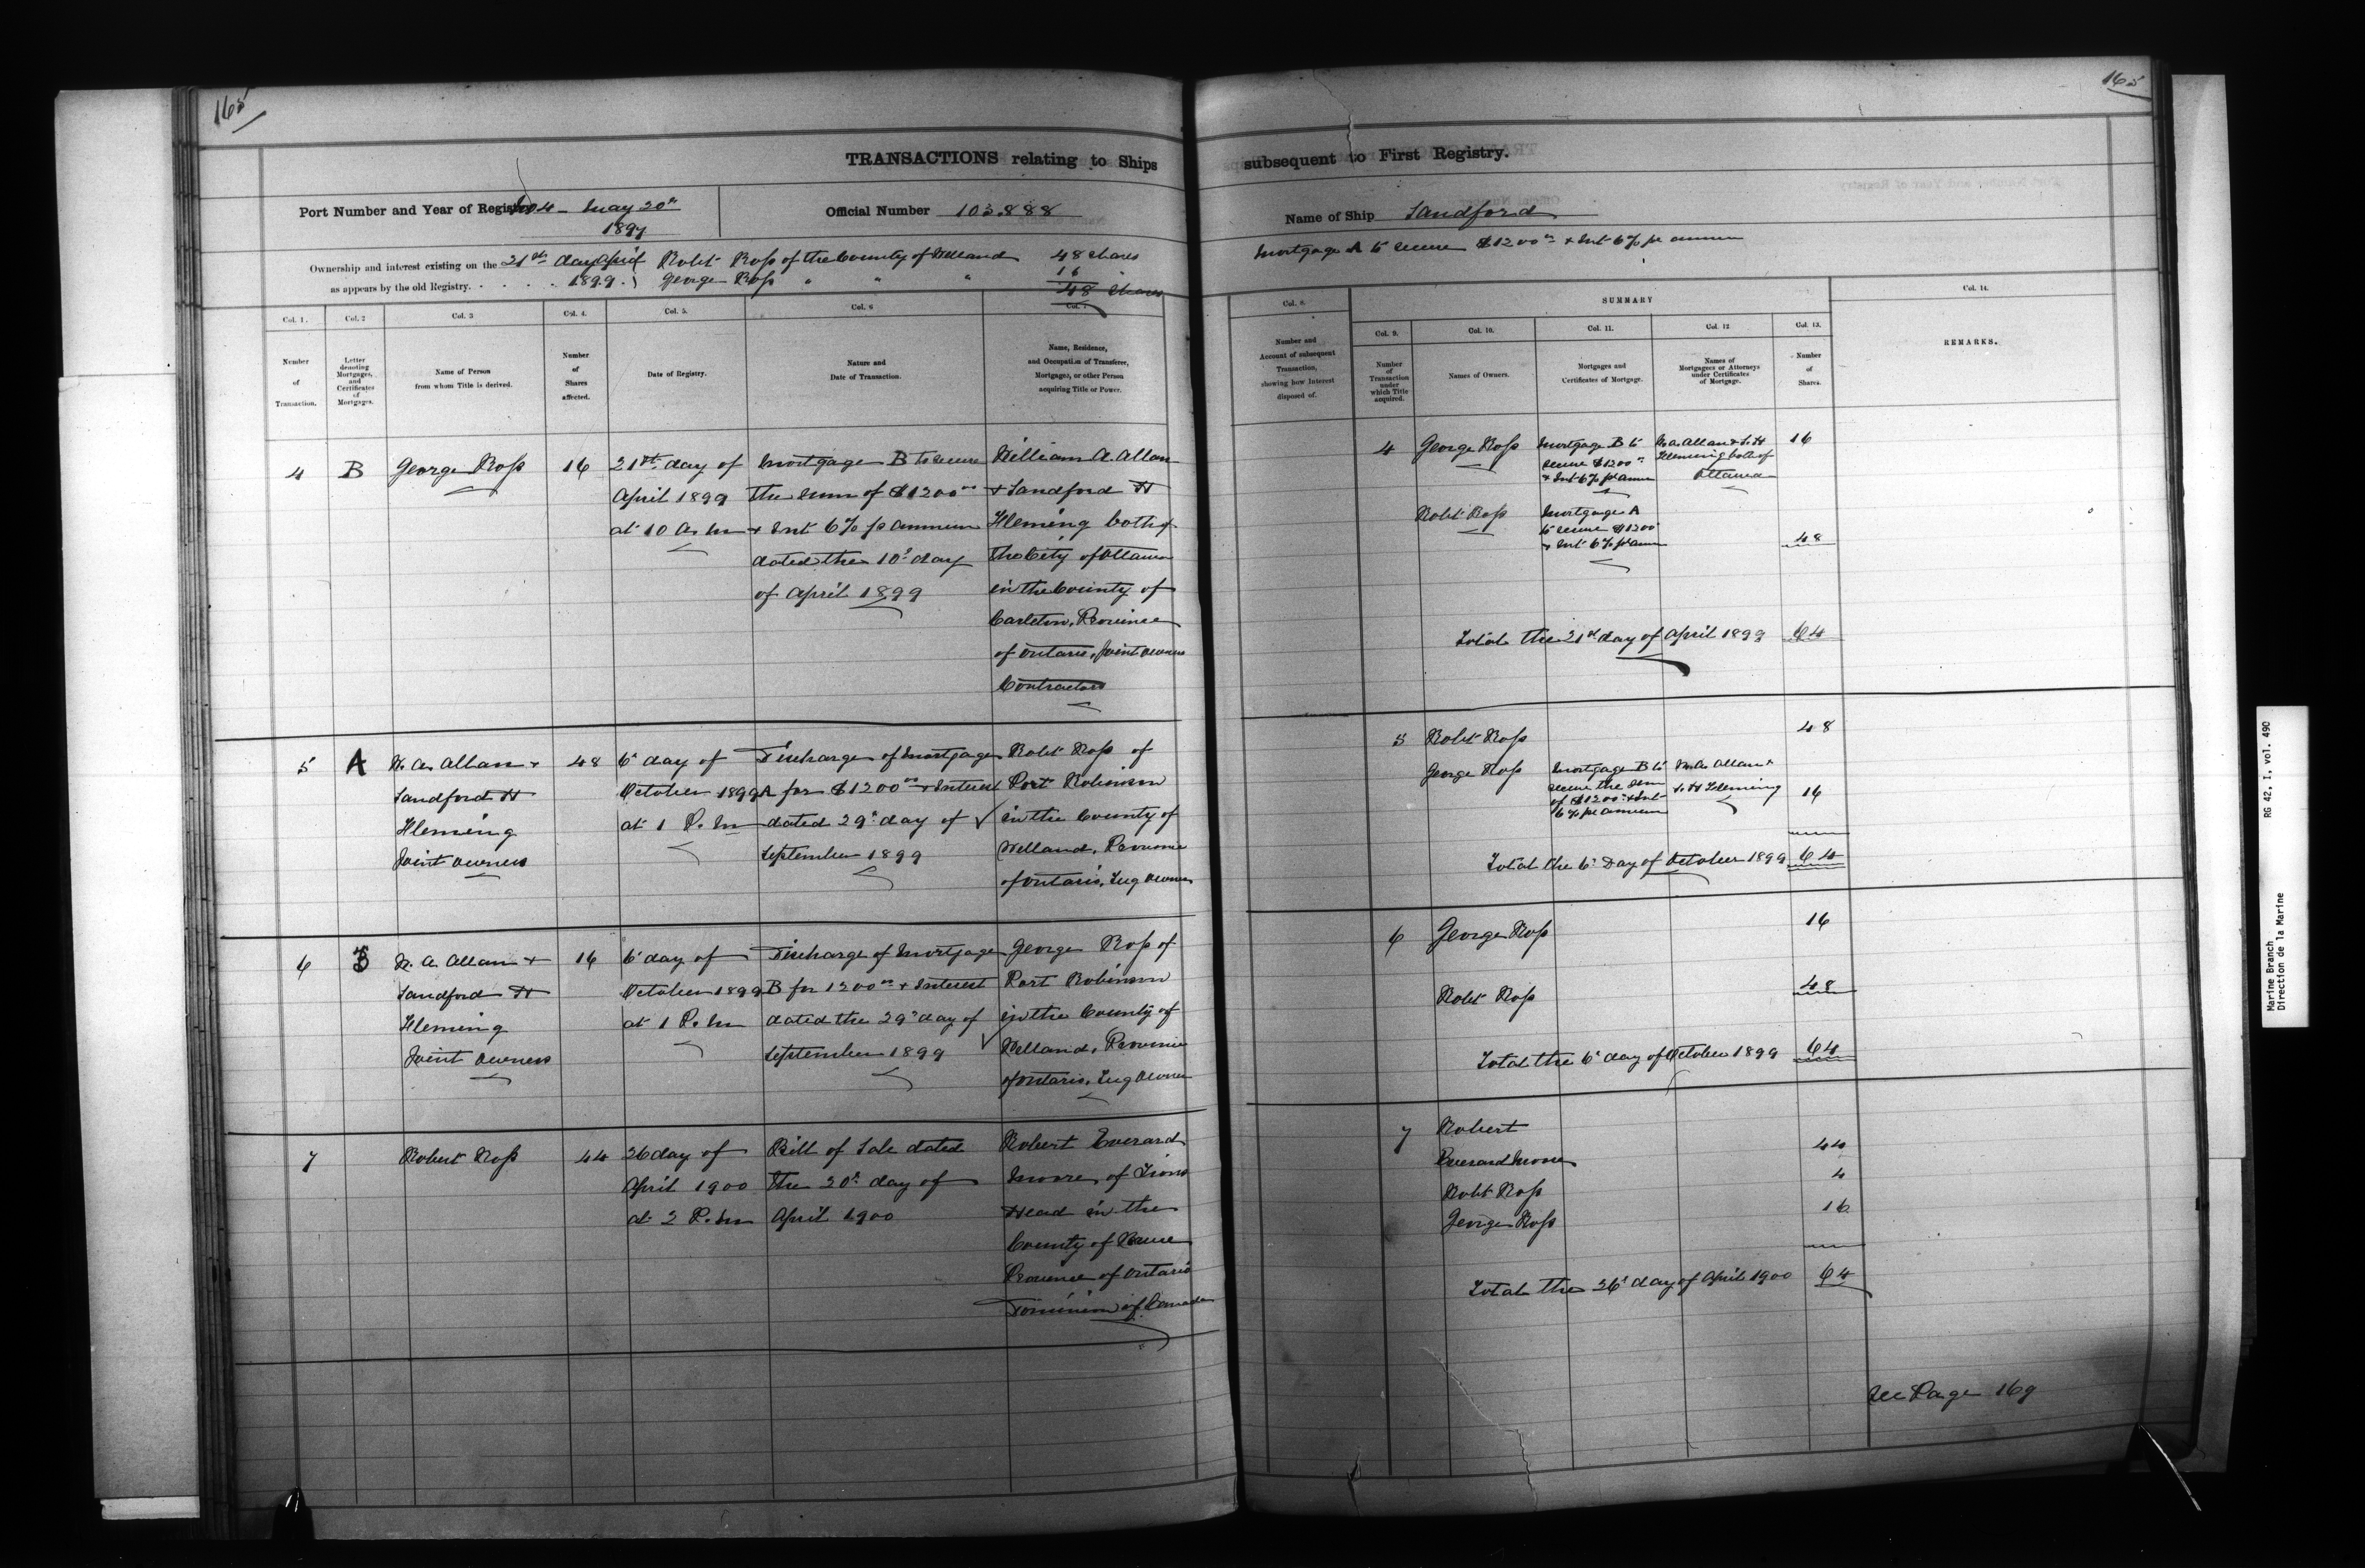 165
TRANSACTIONS relating to Ships
Port Number and Year of Registry No 4 - May 20th
1897
Official Number 103.888
Ownership and interest existing on the 21st day April Robt Ross of the County of Welland 48 shares
as appears by the old Registry. 1899. George Ross " " " 16 "
48 shares
Col. 1.
Col. 2
Col. 3
Col. 4.
Col. 5.
Col. 6
Col. 7
Number of Transaction.
Letter denoting Mortgages, and Certificates of Mortgages.
Name of Person from whom Title is derived.
Number of Shares affected.
Date of Registry.
Nature and Date of Transaction.
Name, Residence, and Occupation of Transferee, Mortgagee, or other Person acquiring Title or Power.
4 B George Ross 16 21st day of Mortgage B to secure William A. Allan
April 1899 the sum of $1200 00 + Sandford H
at 10 A.M + Int 6% pr annum Fleming both of
dated the 10th day the City of Ottawa
of April 1899 in the County of
Carleton, Province
of Ontario, Joint Owners
Contractors
5 A W. A. Allan + 48 6th day of Discharge of Mortgage Robt Ross of
Sandford H October 1899 A for $1200 00 + Interest Port Robinson
Fleming at 1 P.M dated 29th day of in the County of
Joint Owners September 1899 Welland, Province
of Ontario, Tug Owner
6 B W. A. Allan + 16 6th day of Discharge of Mortgage George Ross of
Sandford H October 1899 B for 1200 00 + Interest Port Robinson
Fleming at 1 P.M dated the 29th day of in the County of
Joint Owners September 1899 Welland, Province
of Ontario, Tug Owner
7 Robert Ross 44 26 day of Bill of Sale dated Robert Everard
April 1900 the 20th day of Moore, of Lions
at 2 P.M April 1900 Head in the
County of Bruce
Province of Ontario
Dominion of Canada
165
subsequent to First Registry.
Name of Ship Sandford
Mortgage A to secure $1200 00 + Int 6% pr annum
Col. 8.
SUMMARY
Col. 14.
Col. 9.
Col. 10.
Col. 11.
Col. 12
Col. 13.
Number and Account of subsequent Transaction, showing how Interest disposed of.
Number of Transaction under which Title acquired.
Names of Owners.
Mortgages and Certificates of Mortgage.
Names of Mortgagees or Attorneys under Certificates of Mortgage.
Number of Shares.
REMARKS.
4 George Ross Mortgage B to W. A. Allan + S. H 16
secure $1200 00 Fleming both of
+ Int 6% pr annum Ottawa
Robt Ross Mortgage A
to secure $1200
+ Int 6% pr annum 48
Total the 21st day of April 1899 64
5 Robt Ross 48
George Ross Mortgage B to W. A. Allan +
secure the sum S. H Fleming
of $1200 00 + Int 16
6% pr annum
Total the 6th Day of October 1899 64
6 George Ross 16
Robt Ross 48
Total the 6th day of October 1899 64
7 Robert
Everard Moore 44
Robt Ross 4
George Ross 16
Total the 26th day of April 1900 64
See Page 169
Marine Branch RG 42, I, vol. 490
Direction de la Marine